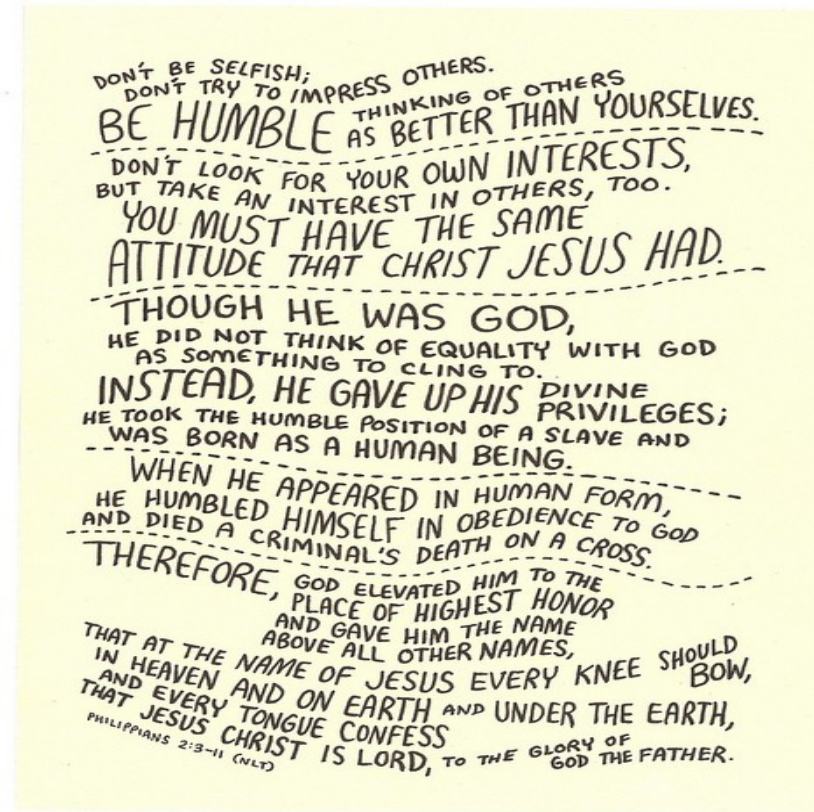 DON'T BE SELFISH;
DON'T TRY TO IMPRESS OTHERS.
BE HUMBLE THINKING OF OTHERS
AS BETTER THAN YOURSELVES.
DON'T LOOK FOR YOUR OWN INTERESTS,
BUT TAKE AN INTEREST IN OTHERS, TOO.
YOU MUST HAVE THE SAME
ATTITUDE THAT CHRIST JESUS HAD.
THOUGH HE WAS GOD,
HE DID NOT THINK OF EQUALITY WITH GOD
AS SOMETHING TO CLING TO.
INSTEAD, HE GAVE UP HIS DIVINE
PRIVILEGES;
HE TOOK THE HUMBLE POSITION OF A SLAVE AND
WAS BORN AS A HUMAN BEING.
WHEN HE APPEARED IN HUMAN FORM,
HE HUMBLED HIMSELF IN OBEDIENCE TO GOD
AND DIED A CRIMINAL'S DEATH ON A CROSS.
THEREFORE, GOD ELEVATED HIM TO THE
PLACE OF HIGHEST HONOR
AND GAVE HIM THE NAME
ABOVE ALL OTHER NAMES,
THAT AT THE NAME OF JESUS EVERY KNEE SHOULD
BOW,
IN HEAVEN AND ON EARTH AND UNDER THE EARTH,
AND EVERY TONGUE CONFESS
THAT JESUS CHRIST IS LORD, TO THE GLORY OF
GOD THE FATHER.
PHILIPPIANS 2:3-11 (NLT)